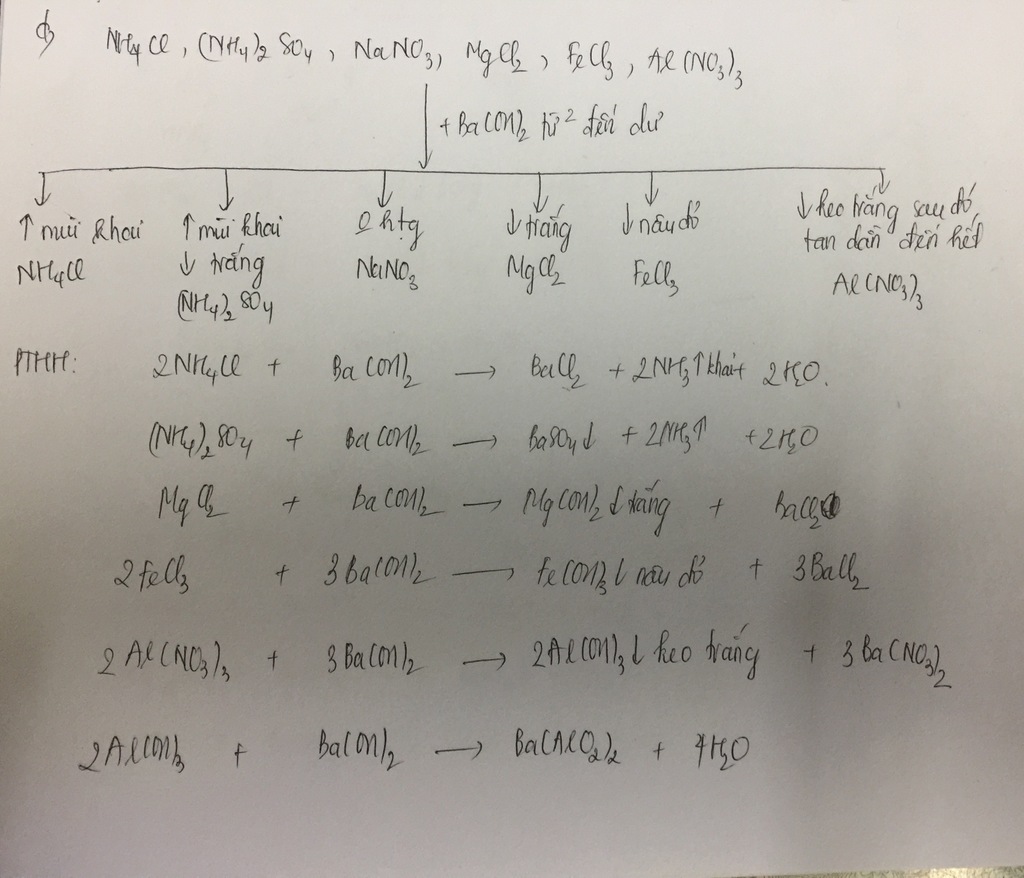 NH4Cl, (NH4)2SO4, NaNO3, MgCl2, FeCl3, Al(NO3)3
+ Ba(OH)2 từ² đến dư
↑ mùi khai ↑ mùi khai 0 htg ↓ trắng ↓ nâu đỏ ↓ keo trắng sau đó
NH4Cl ↓ trắng NaNO3 MgCl2 FeCl3 tan dần đến hết
(NH4)2SO4 Al(NO3)3
PTHH: 2NH4Cl + Ba(OH)2 → BaCl2 + 2NH3↑ khai + 2H2O.
(NH4)2SO4 + Ba(OH)2 → BaSO4↓ + 2NH3↑ + 2H2O
MgCl2 + Ba(OH)2 → Mg(OH)2↓ trắng + BaCl2
2FeCl3 + 3Ba(OH)2 → Fe(OH)3↓ nâu đỏ + 3BaCl2
2Al(NO3)3 + 3Ba(OH)2 → 2Al(OH)3↓ keo trắng + 3Ba(NO3)2
2Al(OH)3 + Ba(OH)2 → Ba(AlO2)2 + 4H2O